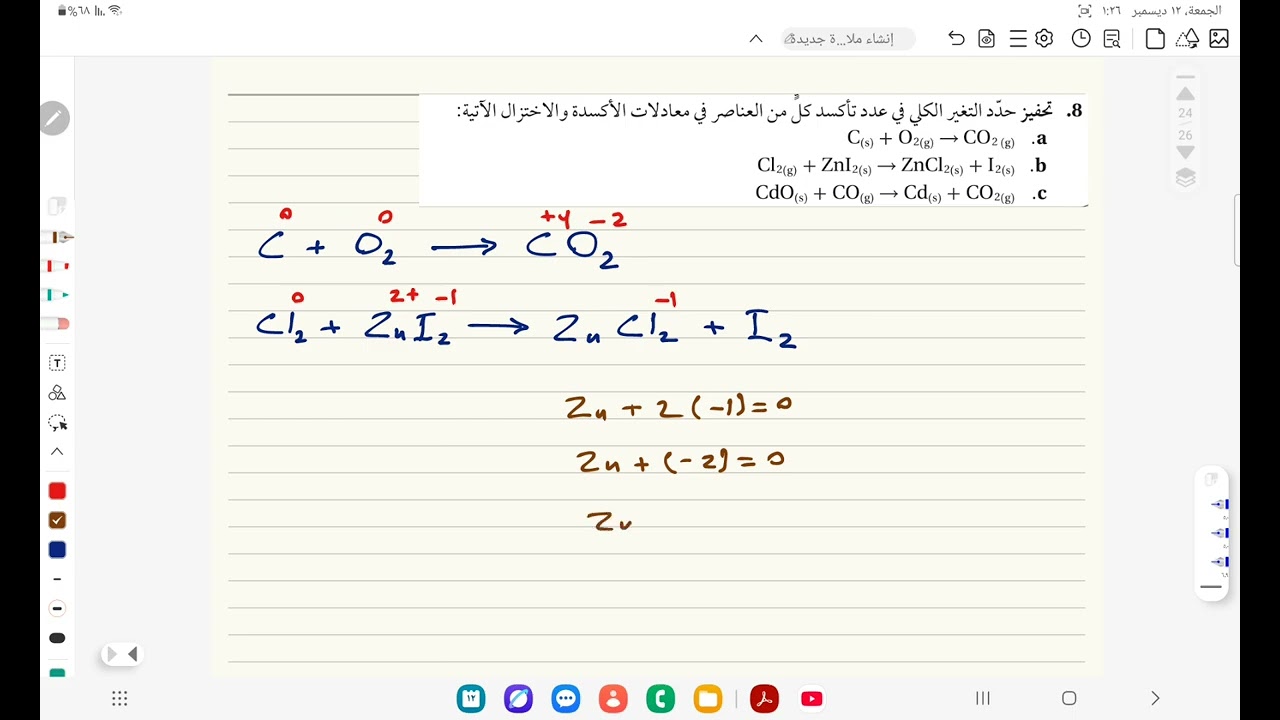 الجمعة، ١٢ ديسمبر ١:٢٦
٦٨%
إنشاء ملا...ة جديدة
24
26
8. تحفيز حدّد التغير الكلي في عدد تأكسد كلٍّ من العناصر في معادلات الأكسدة والاختزال الآتية:
a. C(s) + O2(g) → CO2 (g)
b. Cl2(g) + ZnI2(s) → ZnCl2(s) + I2(s)
c. CdO(s) + CO(g) → Cd(s) + CO2(g)
0 0 +4 -2
C + O2 → CO2
0 2+ -1 -1
Cl2 + ZnI2 → ZnCl2 + I2
Zn + 2(-1) = 0
Zn + (-2) = 0
Zn
T
١٢